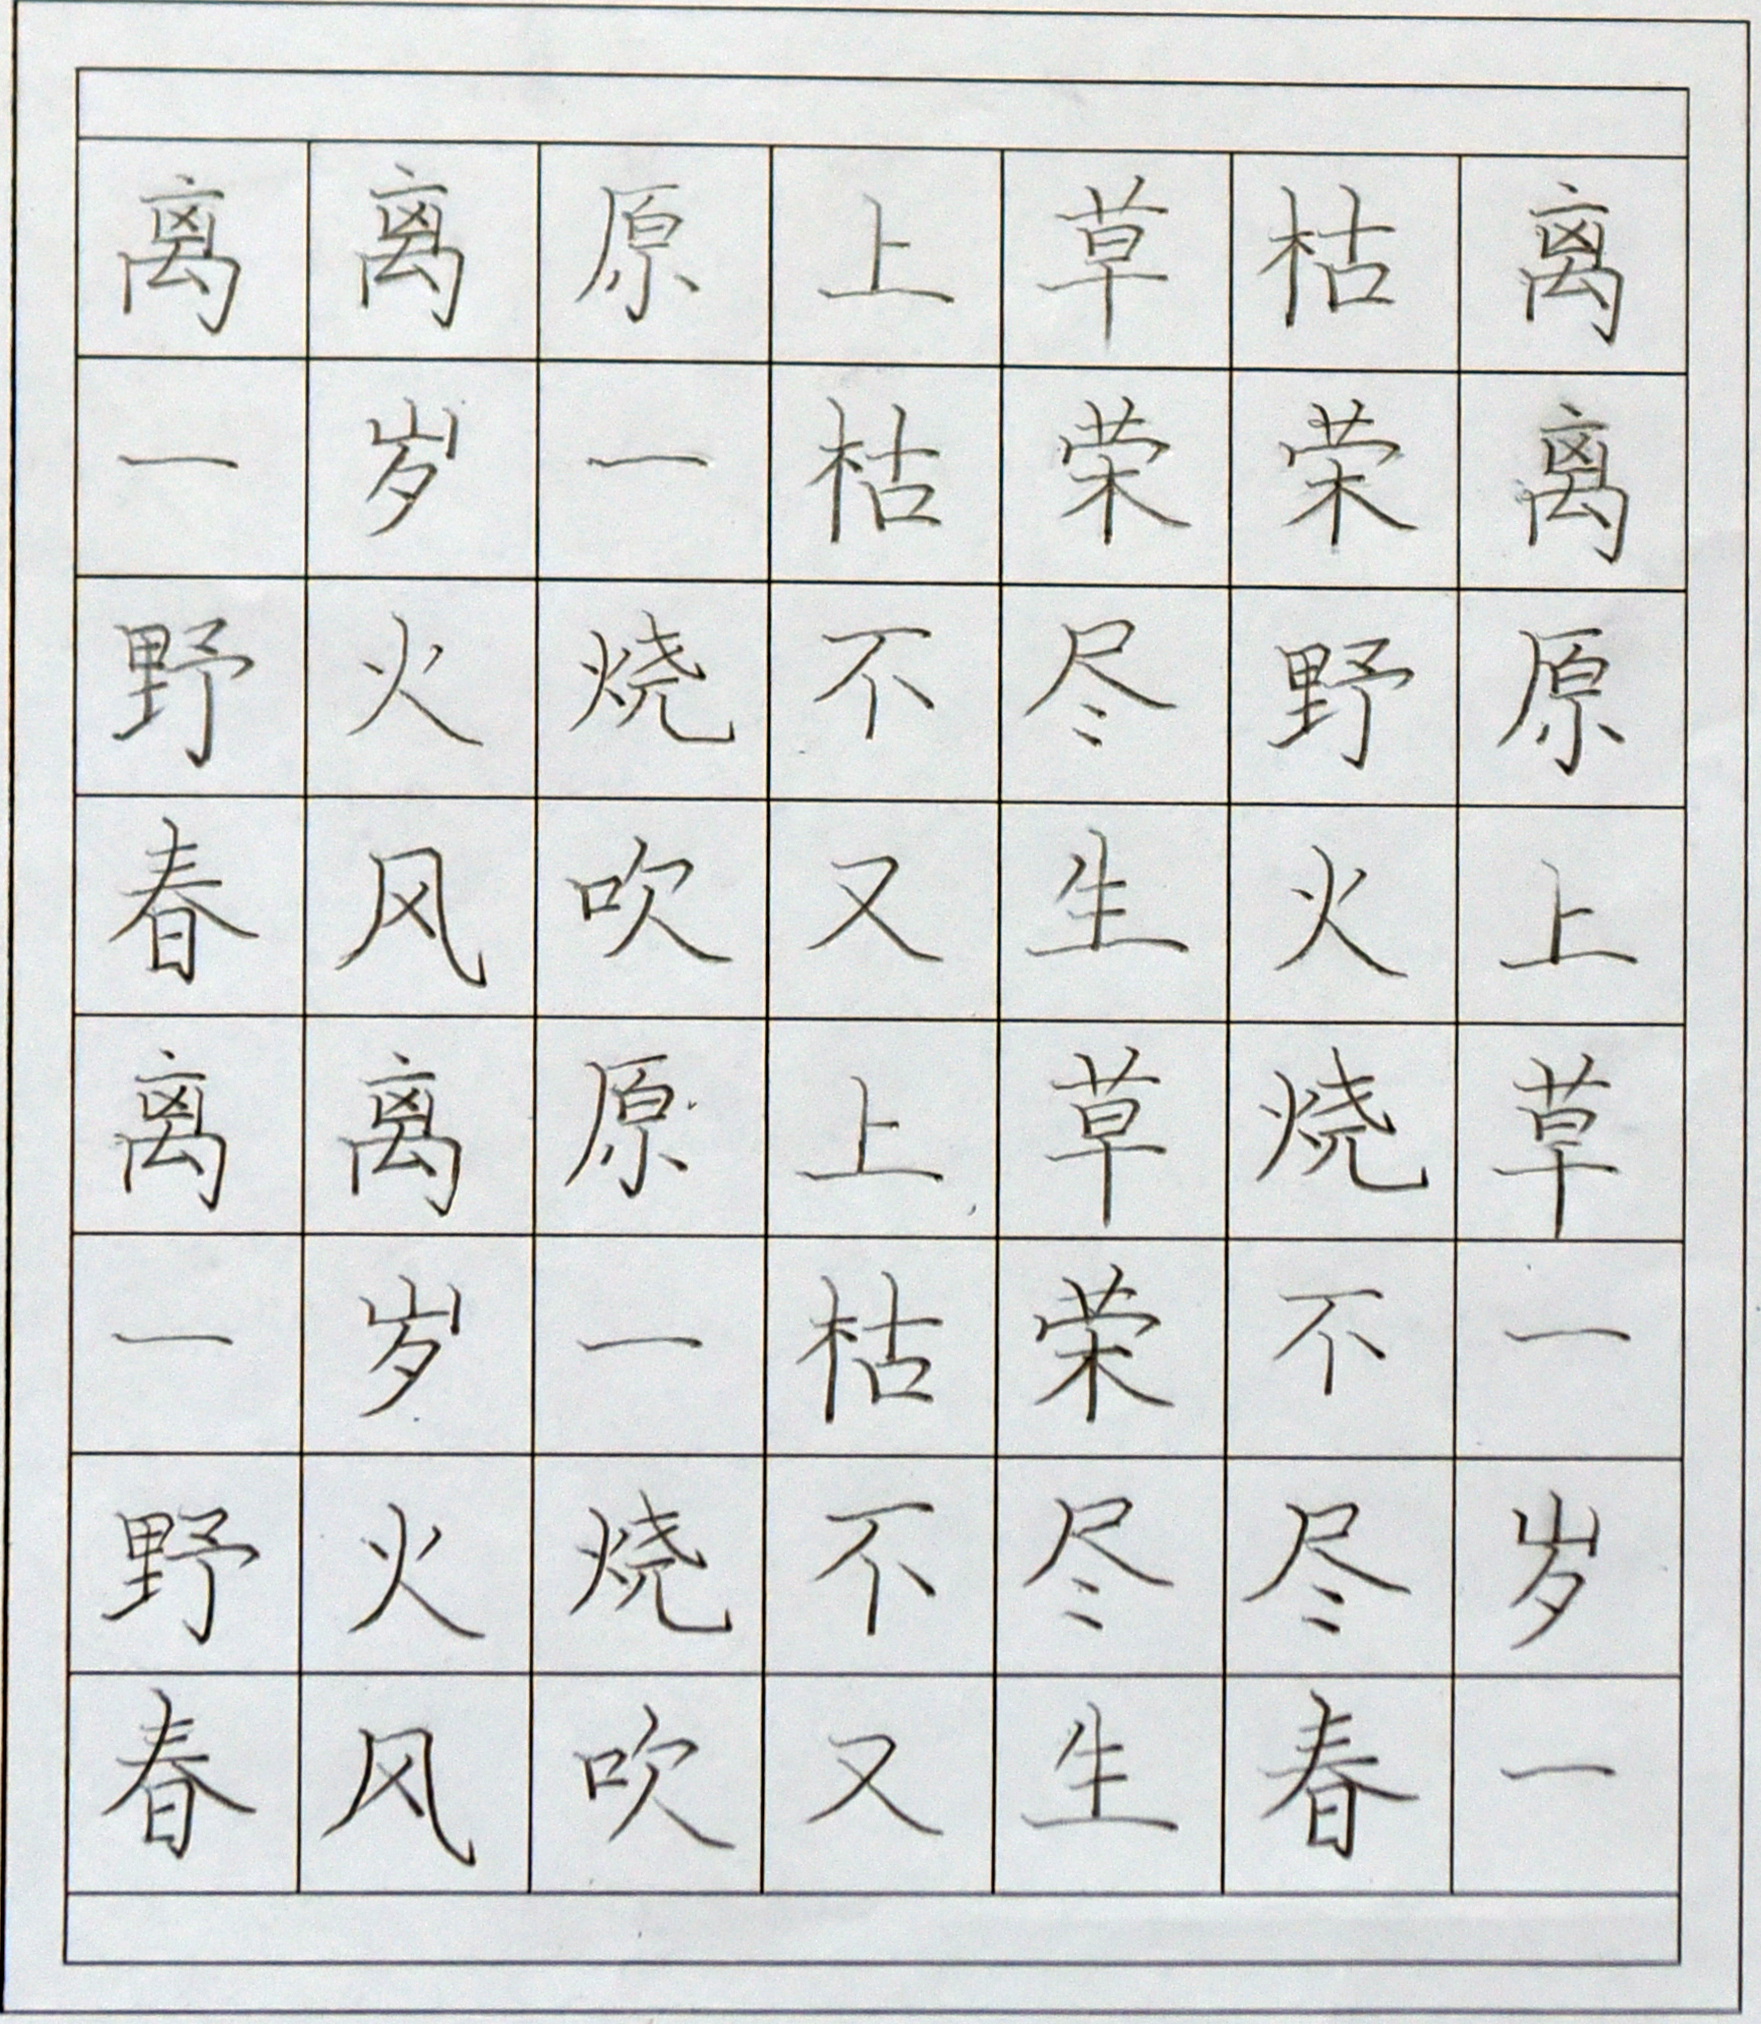 离离原上草枯离
一岁一枯荣荣离
野火烧不尽野原
春风吹又生火上
离离原上草烧草
一岁一枯荣不一
野火烧不尽尽岁
春风吹又生春一